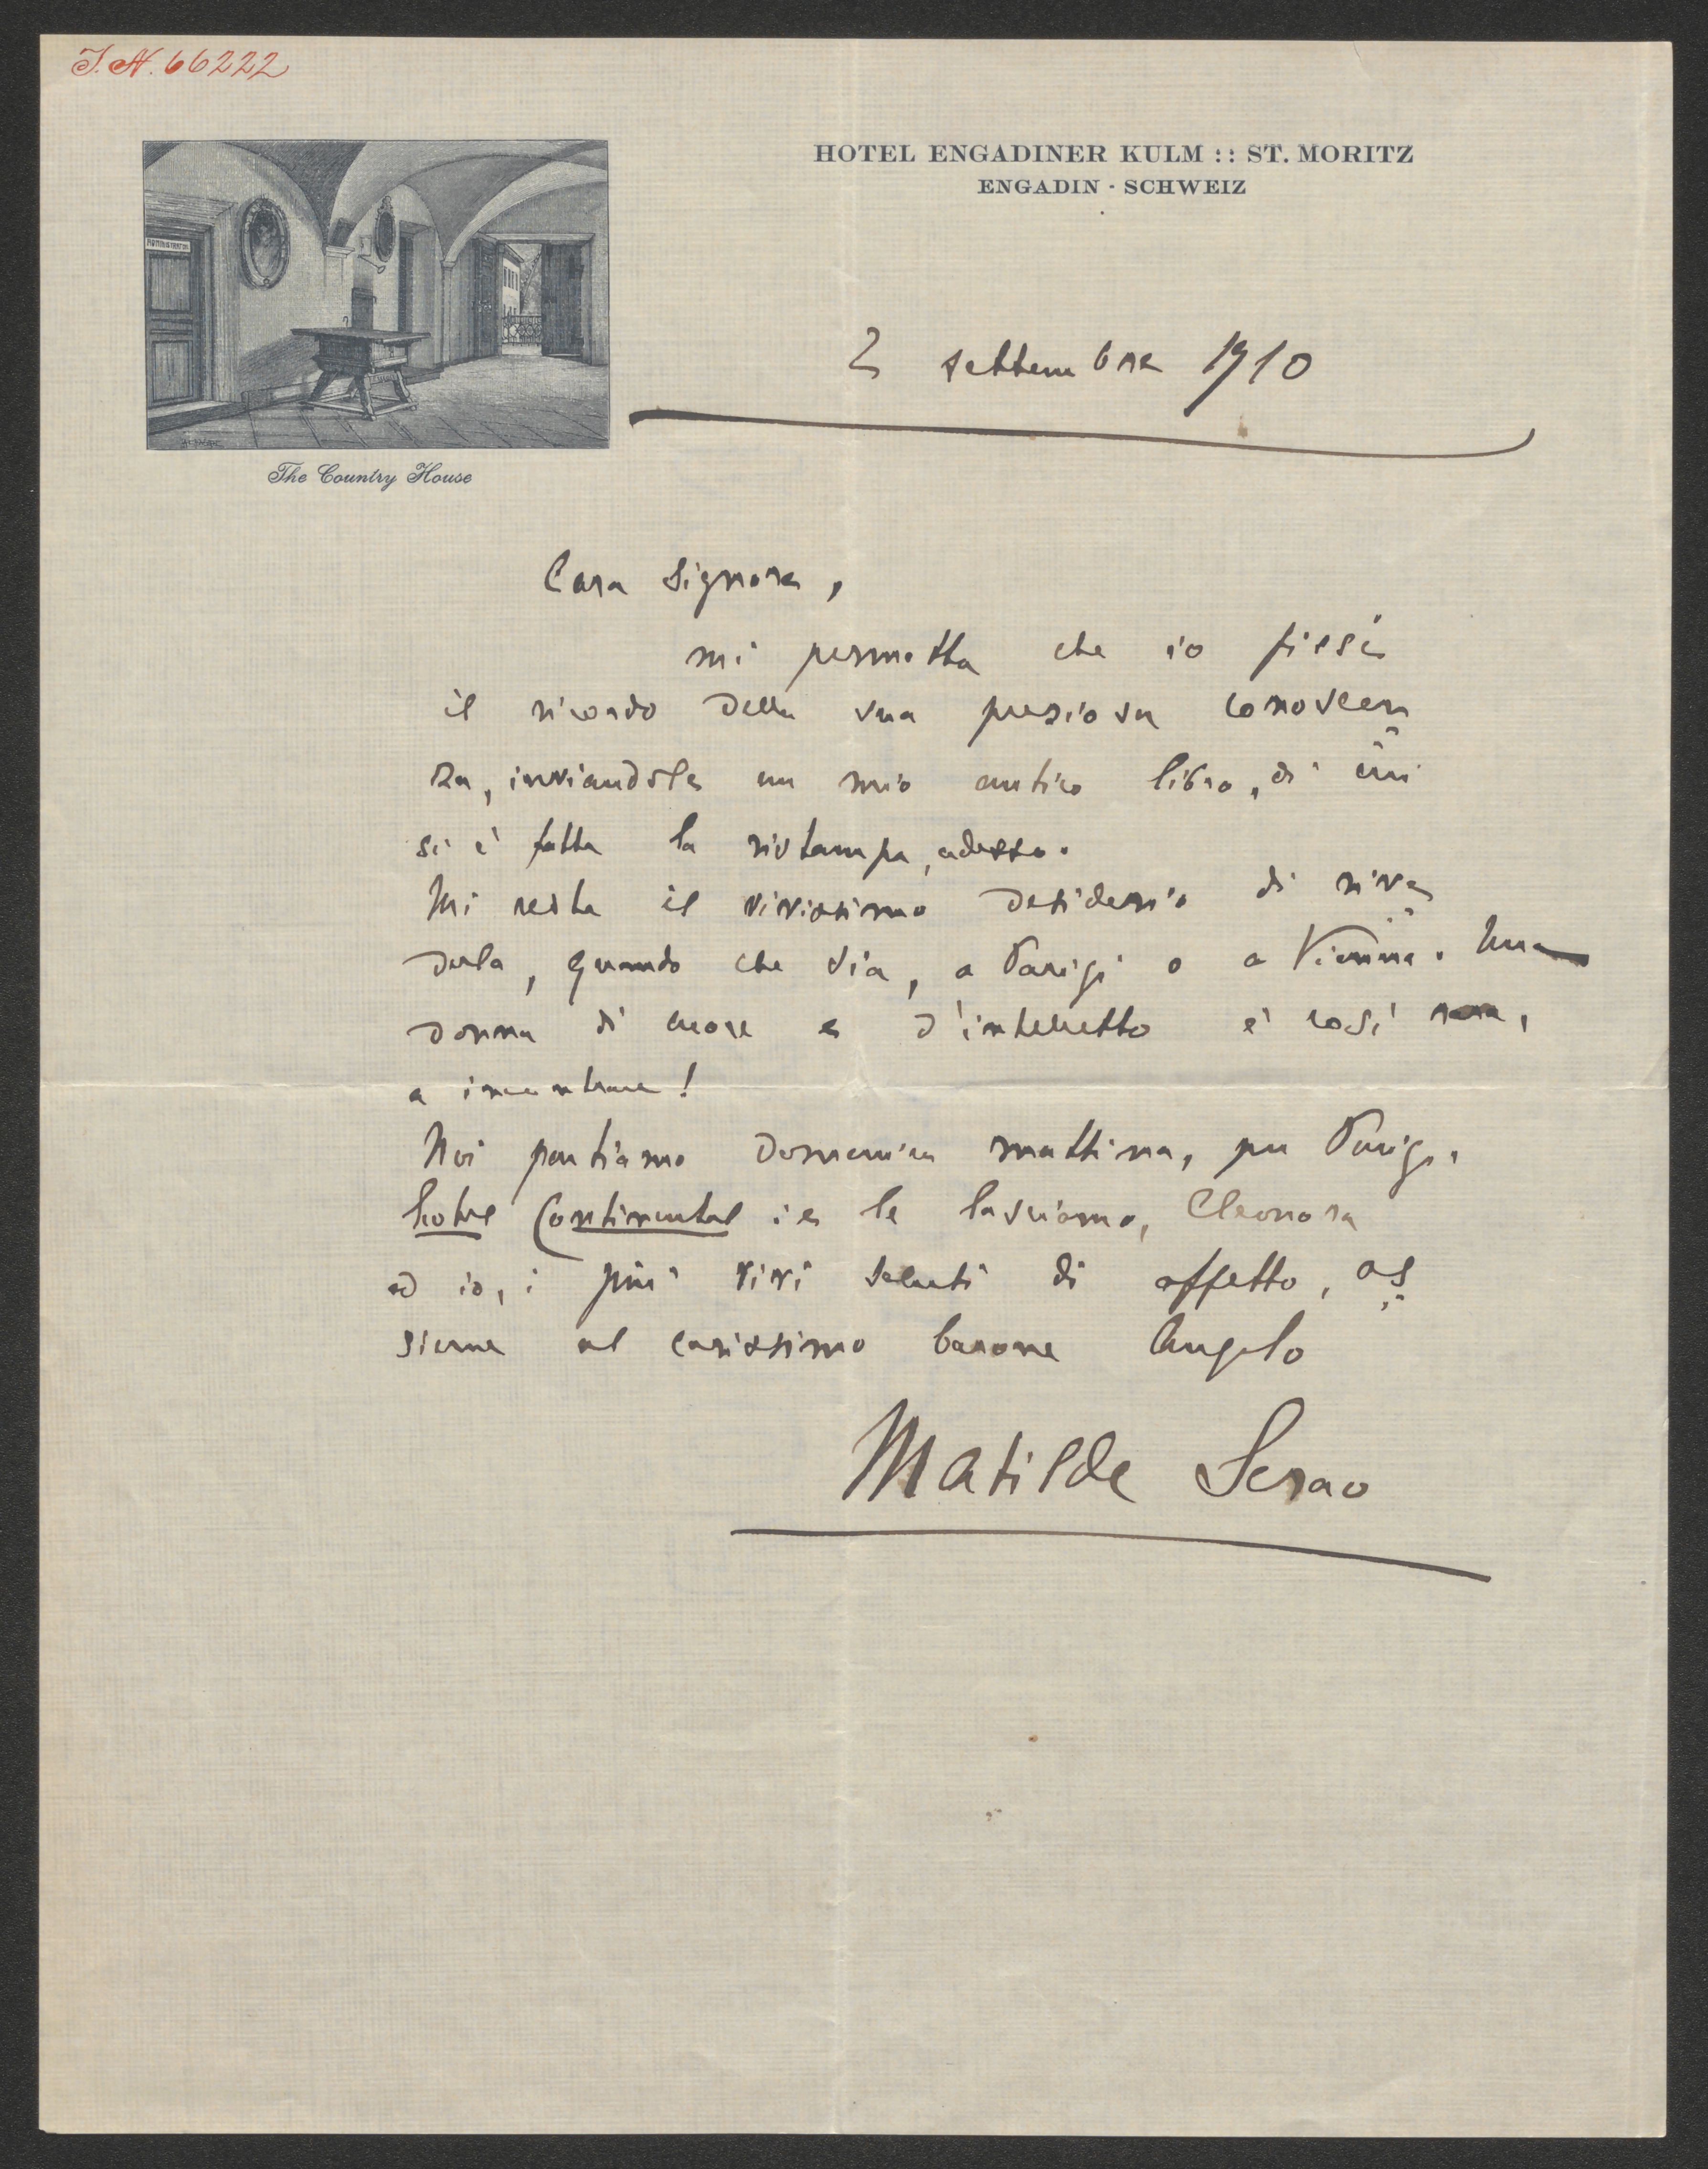 I. N. 66222
HOTEL ENGADINER KULM :: ST. MORITZ
ENGADIN · SCHWEIZ
ADMINISTRATION
The Country House
2 settembre 1910
Cara Signora,
mi permetta che io fissi
il ricordo della sua preziosa conoscen
za, inviandole un mio antico libro, di cui
si è fatta la ristampa, adesso.
Mi resta il vivissimo desiderio di rive
derla, quando che sia, a Parigi o a Vienna. Una
donna di cuore e d'intelletto è così rara,
a incontrare!
Noi partiamo domenica mattina, per Parigi,
hotel Continental: e le lasciamo, Eleonora
ed io, i più vivi saluti di affetto, as
sieme al carissimo barone Angelo
Matilde Serao